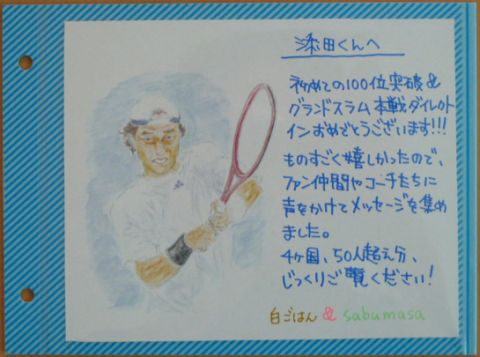 添田くんへ
初めての100位突破&
グランドスラム本戦ダイレクト
インおめでとうございます!!!
ものすごく嬉しかったので、
ファン仲間やコーチたちに
声をかけてメッセージを集め
ました。
4ヶ国、50人超え分、
じっくりご覧ください!
白ごはん & sabumasa